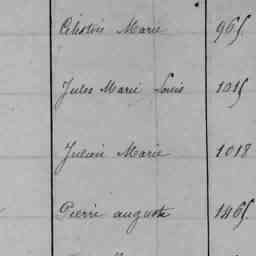 Célestin Marie 965
Jules Marie Louis 1015
Julien Marie 1018
Pierre auguste 1465